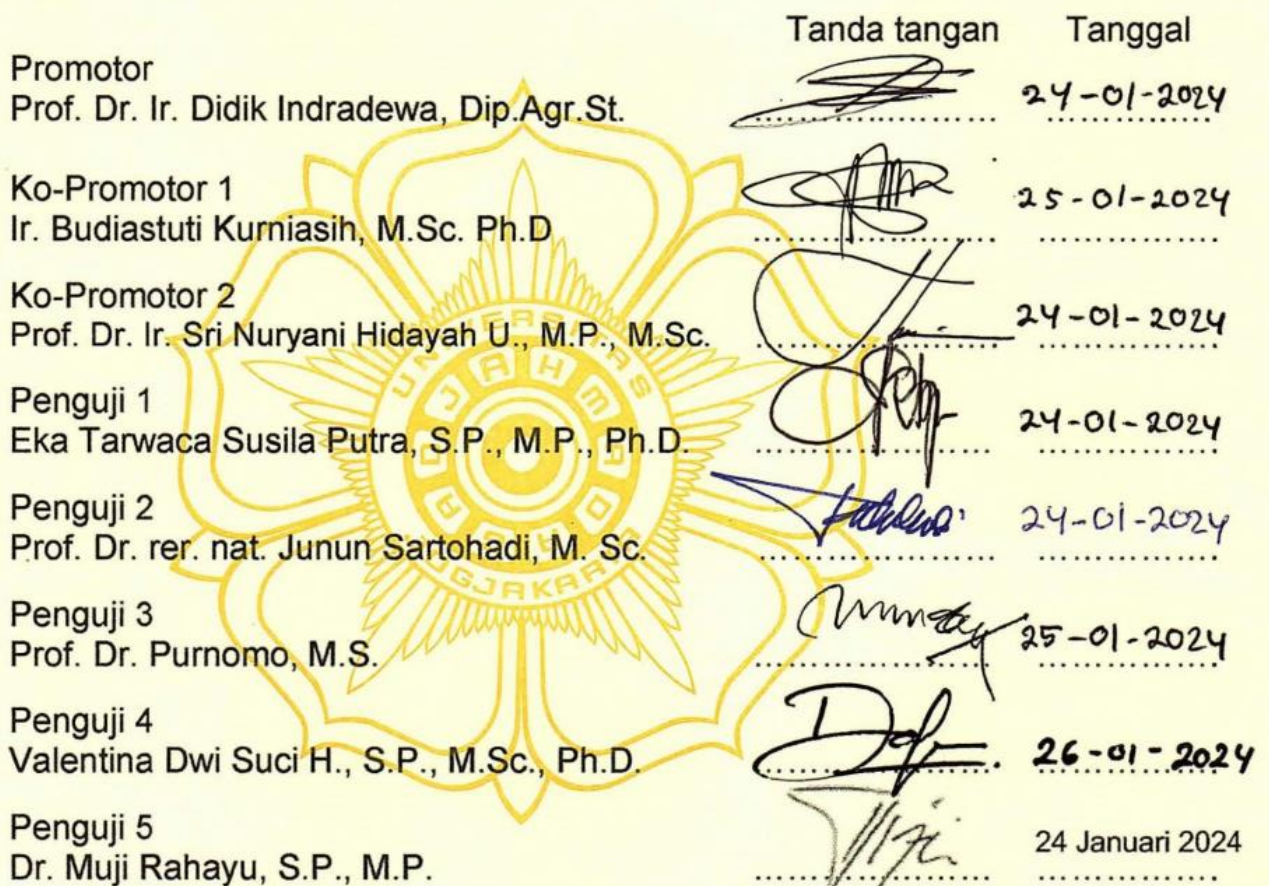 Tanda tangan Tanggal
Promotor
Prof. Dr. Ir. Didik Indradewa, Dip.Agr.St. 24-01-2024
Ko-Promotor 1
Ir. Budiastuti Kurniasih, M.Sc. Ph.D 25-01-2024
Ko-Promotor 2
Prof. Dr. Ir. Sri Nuryani Hidayah U., M.P., M.Sc. 24-01-2024
Penguji 1
Eka Tarwaca Susila Putra, S.P., M.P., Ph.D. 24-01-2024
Penguji 2
Prof. Dr. rer. nat. Junun Sartohadi, M. Sc. 24-01-2024
Penguji 3
Prof. Dr. Purnomo, M.S. 25-01-2024
Penguji 4
Valentina Dwi Suci H., S.P., M.Sc., Ph.D. 26-01-2024
Penguji 5
Dr. Muji Rahayu, S.P., M.P. 24 Januari 2024
UNIVERSITAS
GADJAH MADA